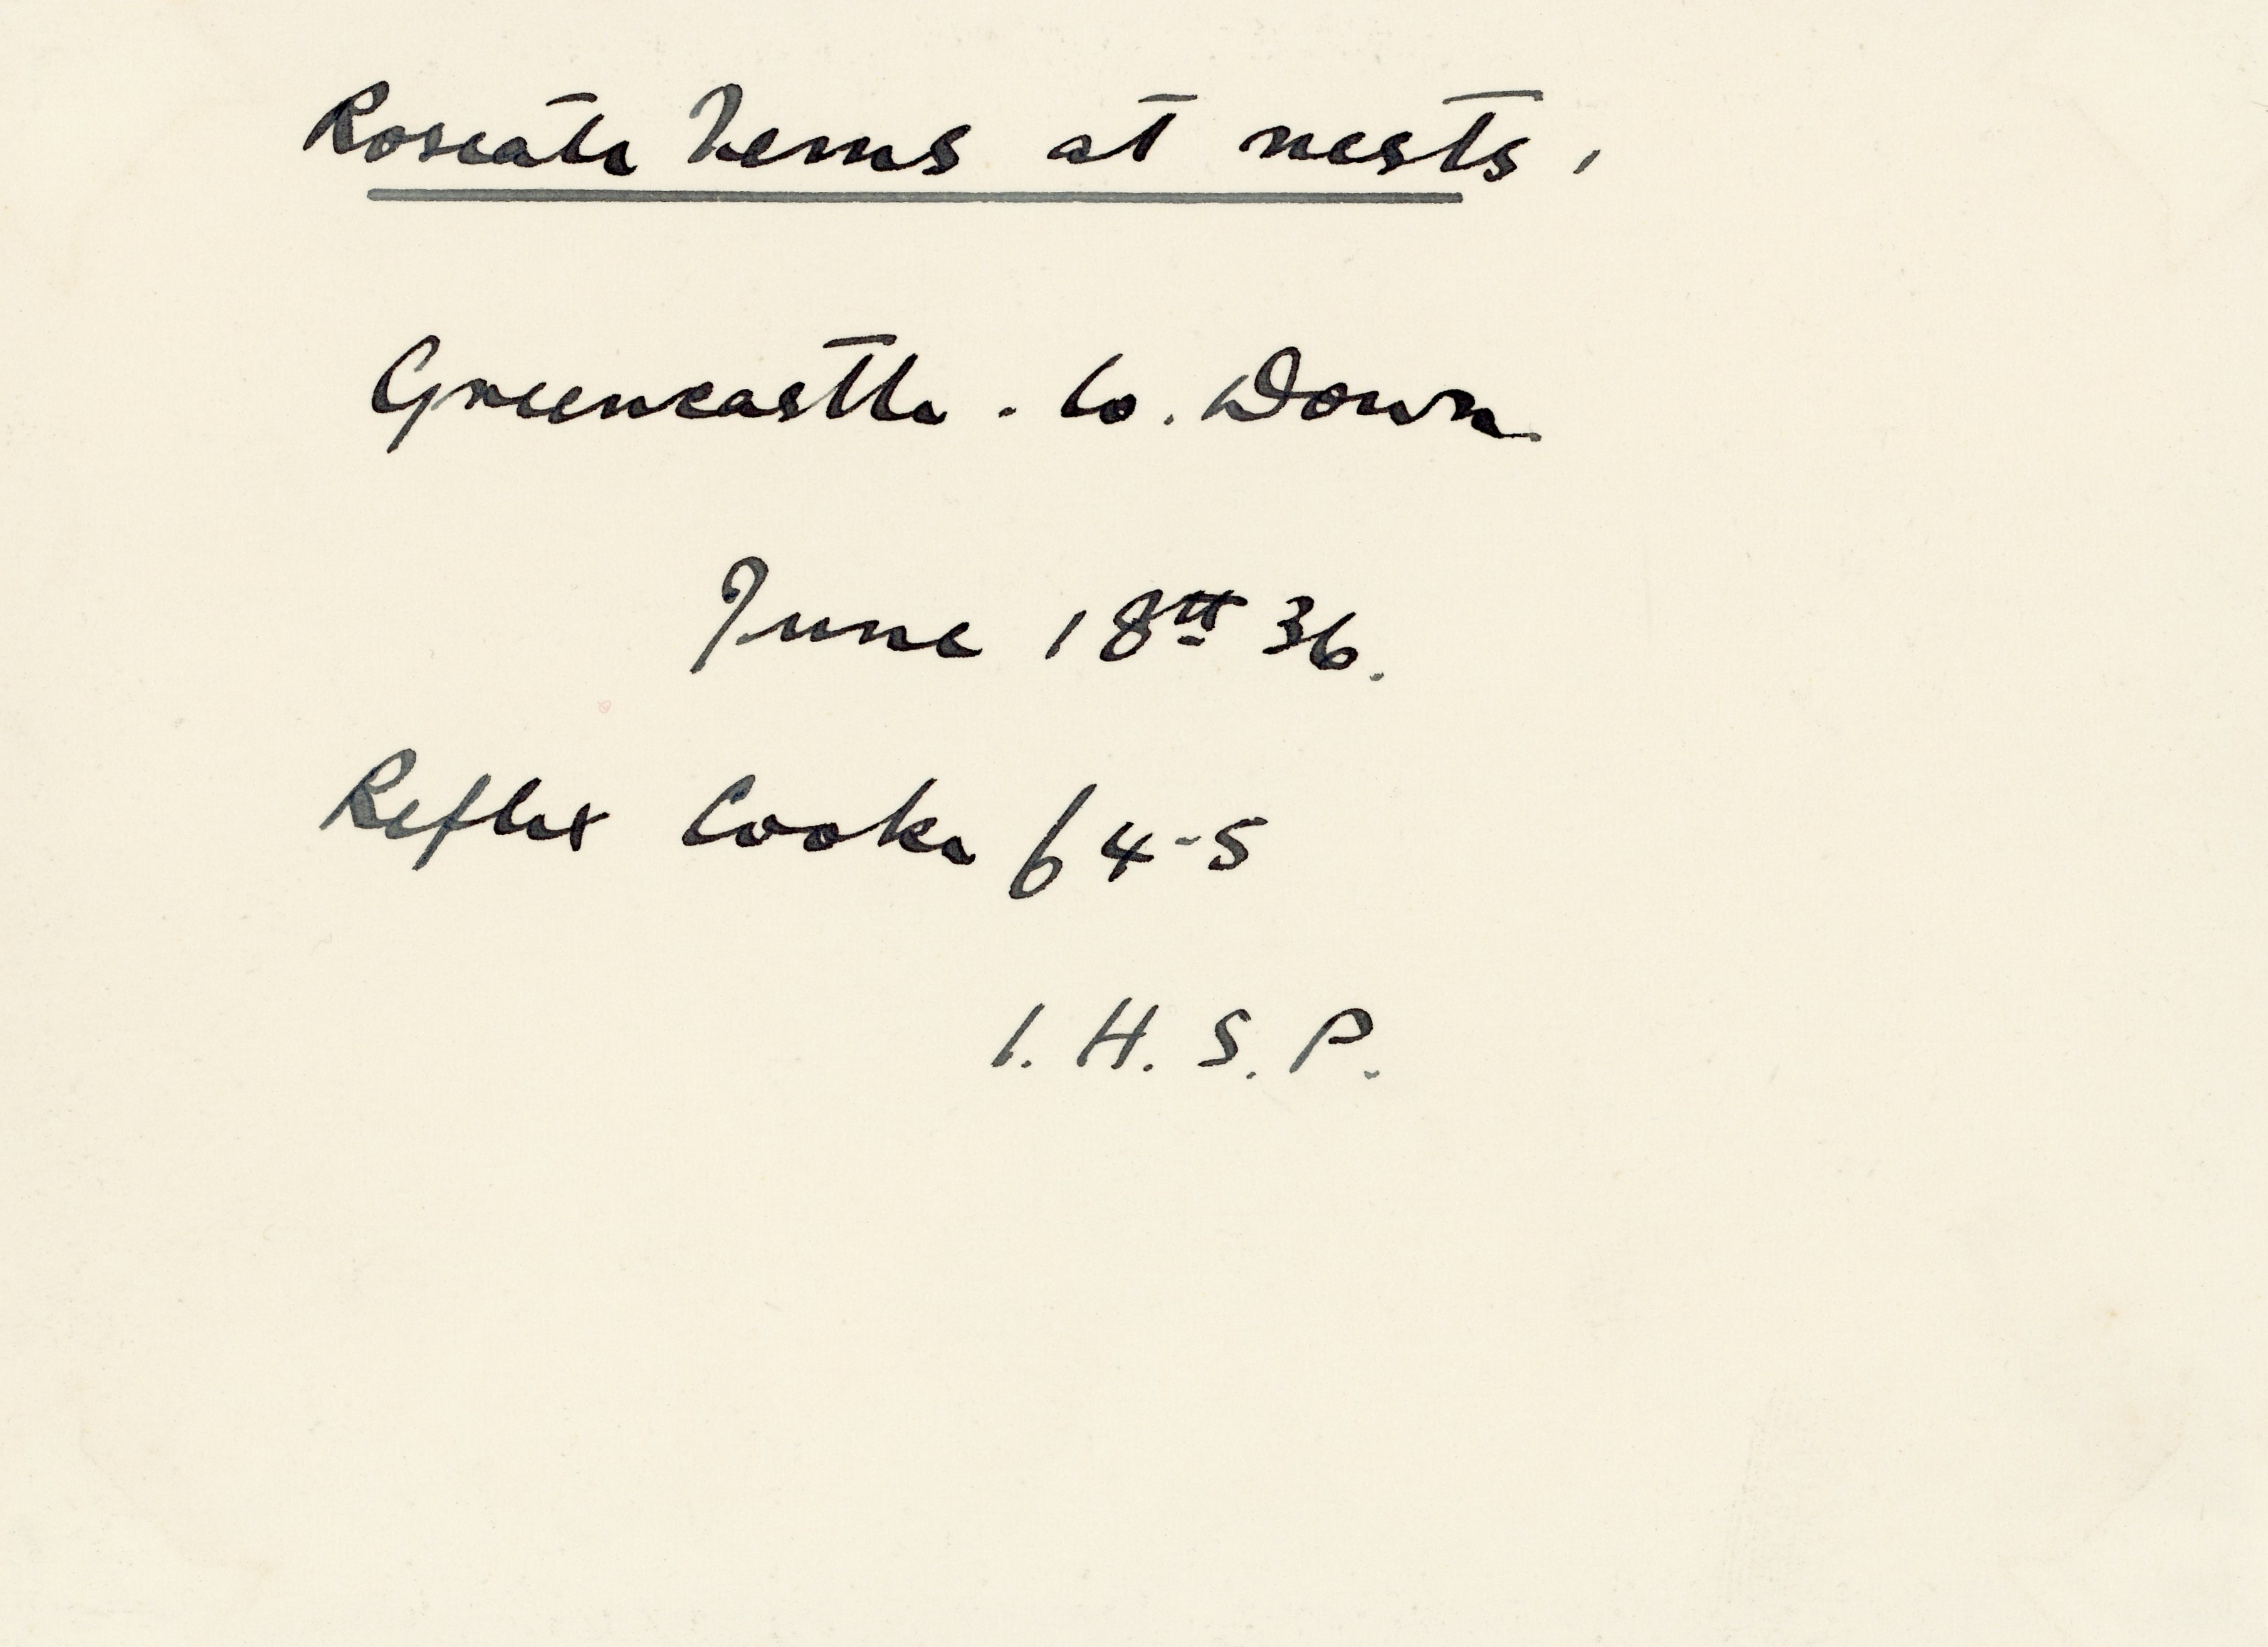 Roseate Terns at nests.
Greencastle. Co. Down
June 18th 36.
Reflex Cooke f 4-5
I. H. S. P.